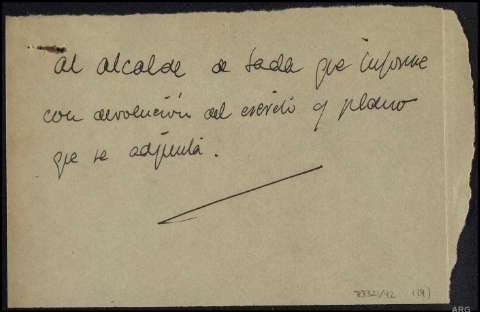 al alcalde de Sada que informe
con devolución del escrito y plano
que se adjunta.
(19)
ARG